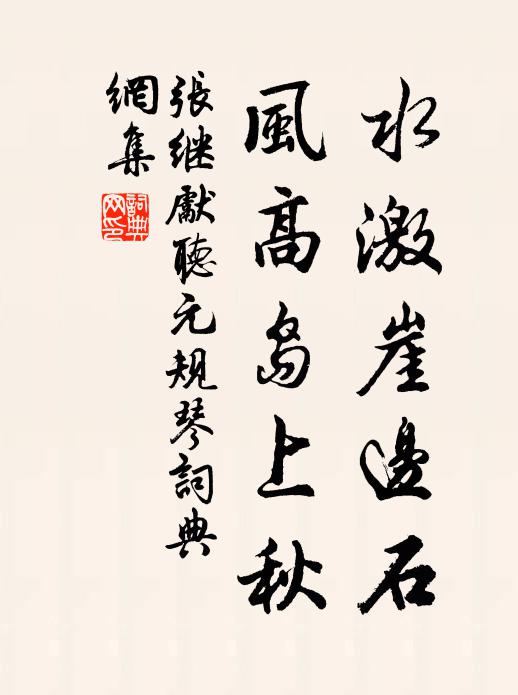 水激崖邊石
風高島上秋
張继獻聽元規琴詞典
網集
詞典
网印